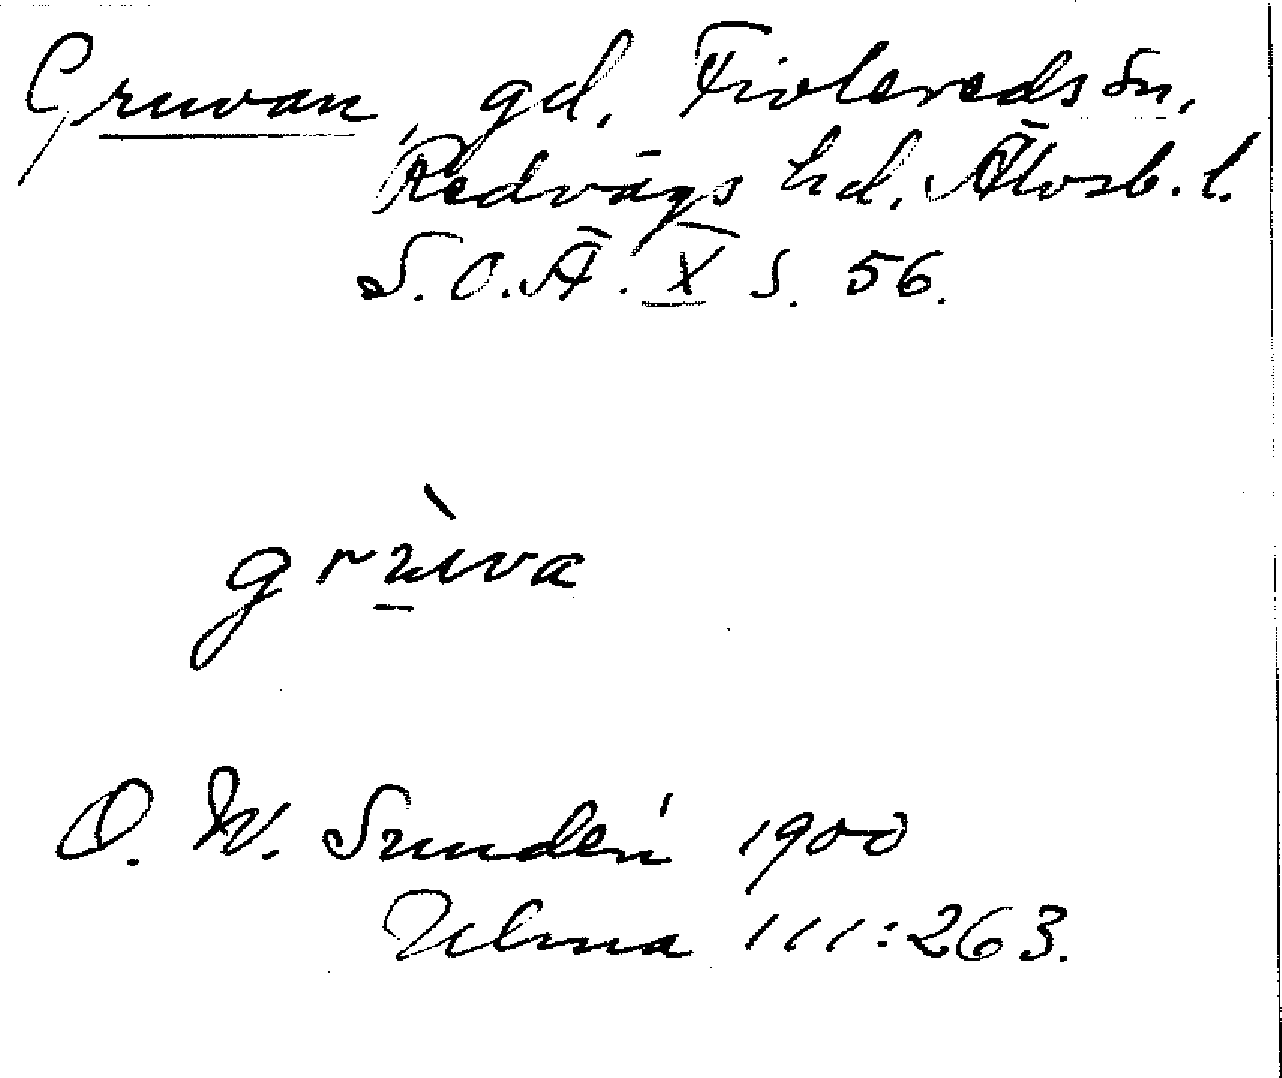 Gruvan, gd, Fivlereds sn,
Redvägs hd, Älvsb. l.
S.O.Ä. X s. 56.
grùva
O. W. Sundén 1900
Ulma 111:263.